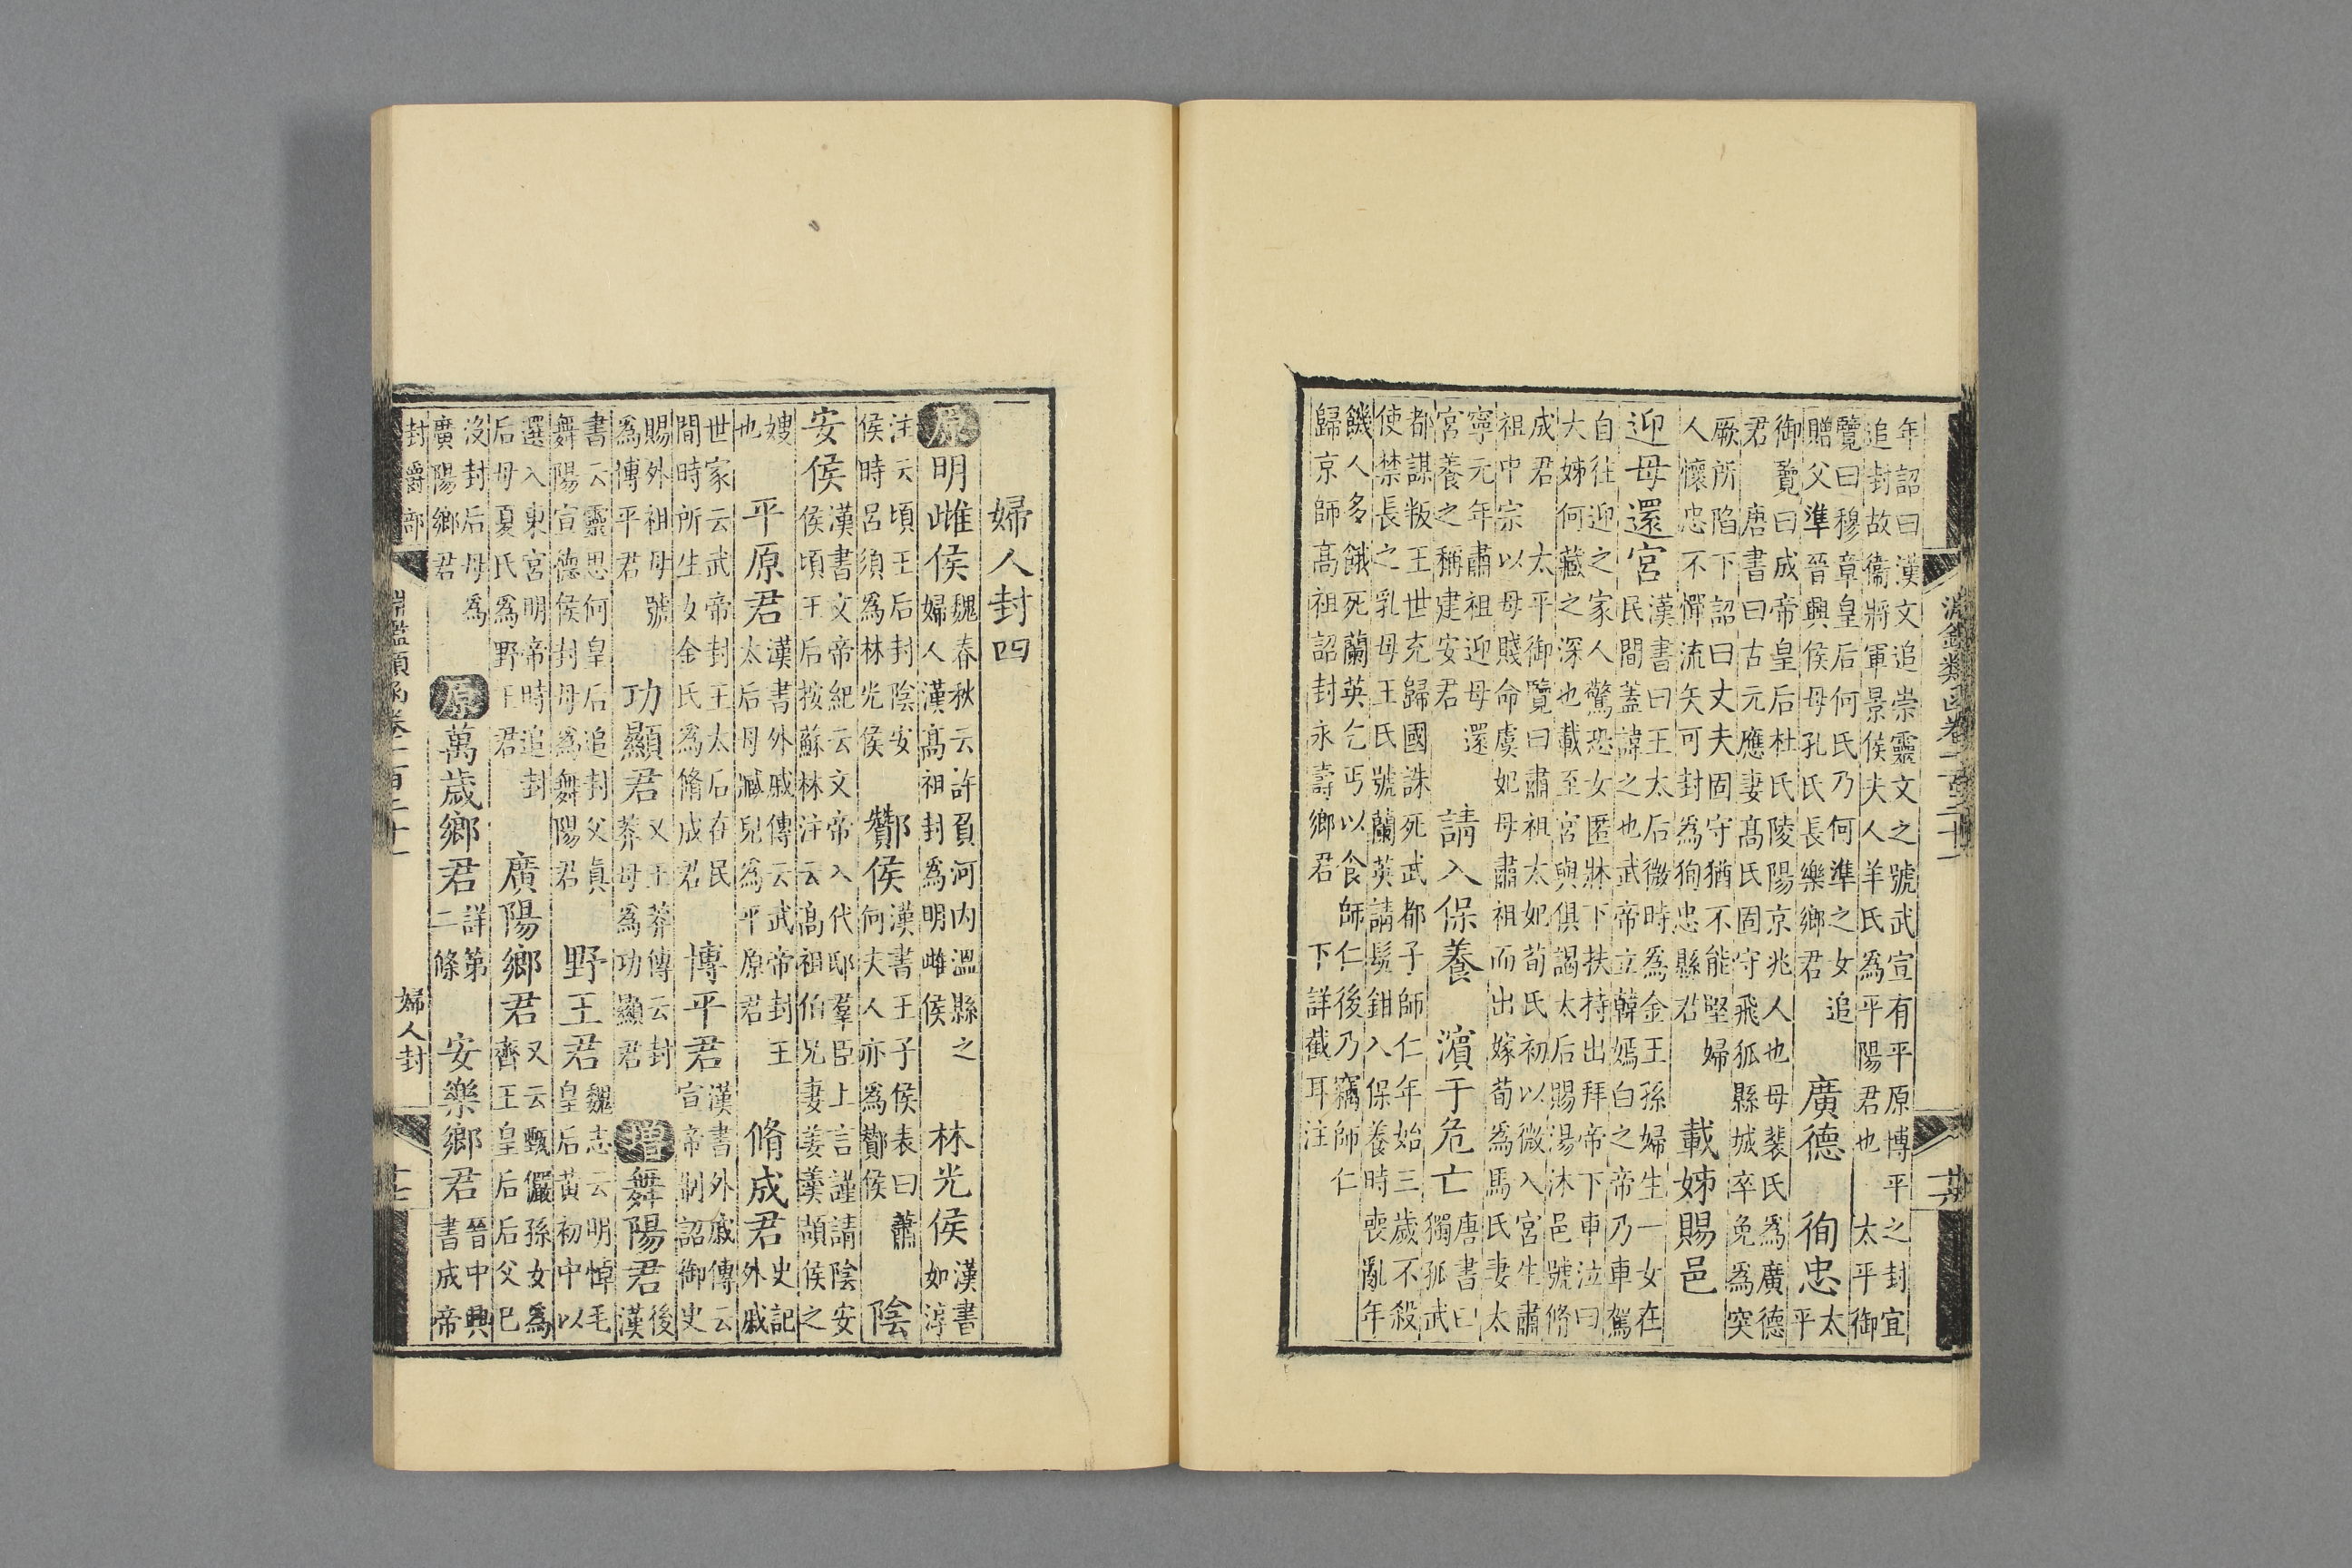 淵鑑類函卷一百二十一
十六
年詔曰漢文追崇靈文之號武宣有平原博平之封宜
追封故衞將軍景侯夫人羊氏為平陽君也 太平御
覽曰穆章皇后何氏乃何準之女追
贈父準晉興侯母孔氏長樂鄉君 廣德 徇忠 太
平
御覽曰成帝皇后杜氏陵陽京兆人也母裴氏為廣德
君 唐書曰古元應妻髙氏固守飛狐縣城卒免為突
厥所陷下詔曰丈夫固守猶不能堅婦
人懷忠不憚流矢可封為徇忠縣君 載姊賜邑
迎母還宮 漢書曰王太后微時為金王孫婦生一女在
民間蓋諱之也武帝立韓嫣白之帝乃車駕
自往迎之家人驚恐女匿牀下扶持出拜帝下車泣曰
大姊何藏之深也載至宮與俱謁太后賜湯沐邑號脩
成君 太平御覽曰肅祖太妃荀氏初以微入宮生肅
祖中宗以母賤命虞妃母肅祖而出嫁荀為馬氏妻太
寧元年肅祖迎母還
宮養之稱建安君 請入保養 濵于危亡 唐書曰
獨孤武
都謀叛王世充歸國誅死武都子師仁年始三歲不殺
使禁長之乳母王氏號蘭英請髡鉗入保養時喪亂年
饑人多餓死蘭英乞丐以食師仁後乃竊師仁
歸京師髙祖詔封永壽鄉君 下詳截耳注
婦人封四
原 明雌侯 魏春秋云許負河内溫縣之
婦人漢髙祖封為明雌侯 林光侯 漢書
如淳
注云頃王后封陰安
侯時呂須為林光侯 酇侯 漢書王子侯表曰蕭
何夫人亦為酇侯 陰
安侯 漢書文帝紀云文帝入代邸羣臣上言謹請陰安
侯頃王后按蘇林注云髙祖伯兄妻姜羹頡侯之
嫂
也 平原君 漢書外戚傳云武帝封王
太后母臧兒為平原君 脩成君 史記
外戚
世家云武帝封王太后在民
間時所生女金氏為脩成君 博平君 漢書外戚傳云
宣帝制詔御史
賜外祖母號
為博平君 功顯君 又王莽傳云封
莽母為功顯君 增 舞陽君 後
漢
書云靈思何皇后追封父眞
舞陽宣德侯封母為舞陽君 野王君 魏志云明悼毛
皇后黃初中以
選入東宮明帝時追封
后母夏氏為野王君 廣陽鄉君 又云甄儼孫女為
齊王皇后后父已
沒封后母為
廣陽鄉君 原 萬歳鄉君 詳第
二條 安樂鄉君 晉中興
書成帝
封爵部
淵鑑類函卷一百二十一
婦人封
十七